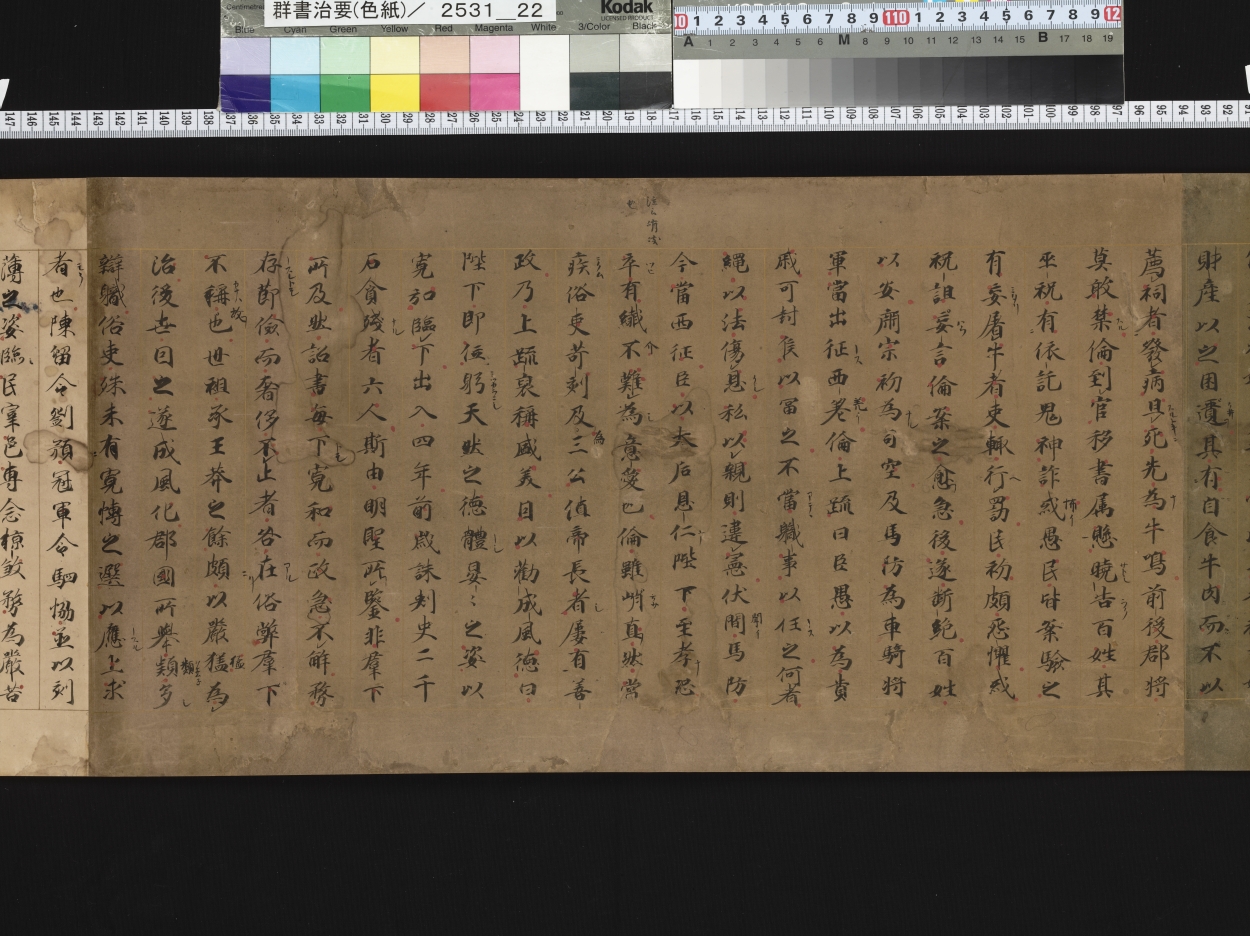 群書治要(色紙)／ 2531__22
Kodak
LICENSED PRODUCT
Blue Cyan Green Yellow Red Magenta White 3/Color Black
財産以之困遺其有自食牛肉而不以
薦祠者發病且死先為牛鳴前後郡將
莫敢禁倫到官移書属懸曉告百姓其
巫祝有依託鬼神詐或愚民皆案驗之
有妄屠牛者吏輙行罰民初頗恐懼或
祝詛妄言倫案之愈急後遂断絶百姓
以安肅宗初為司空及馬防為車騎將
軍當出征西羌倫上疏曰臣愚以為貴
戚可封侯以冨之不當職事以任之何者
繩以法傷恩私以親則違憲伏聞馬防
今當西征臣以太后恩仁陛下至孝恐
卒有纎不難為意愛也倫雖峭直然常
疾俗吏苛刻及三公值帝長者屡有善
政乃上疏裒稱盛美因以勸成風徳曰
陛下即位躬天然之徳體晏〻之姿以
寛弘臨下出入四年前歳誅刺史二千
石貪殘者六人斯由明聖所鑒非羣下
所及然詔書毎下寛和而政急不解務
存節儉而奢侈不止者咎在俗弊羣下
不稱也世祖承王莽之餘頗以嚴猛為
治後世因之遂成風化郡國所擧類多
辯職俗吏殊未有寛愽之選以應上求
者也陳留令劉預冠軍令駟協並以刻
薄之姿臨民宰邑専念掠欸務為嚴苦